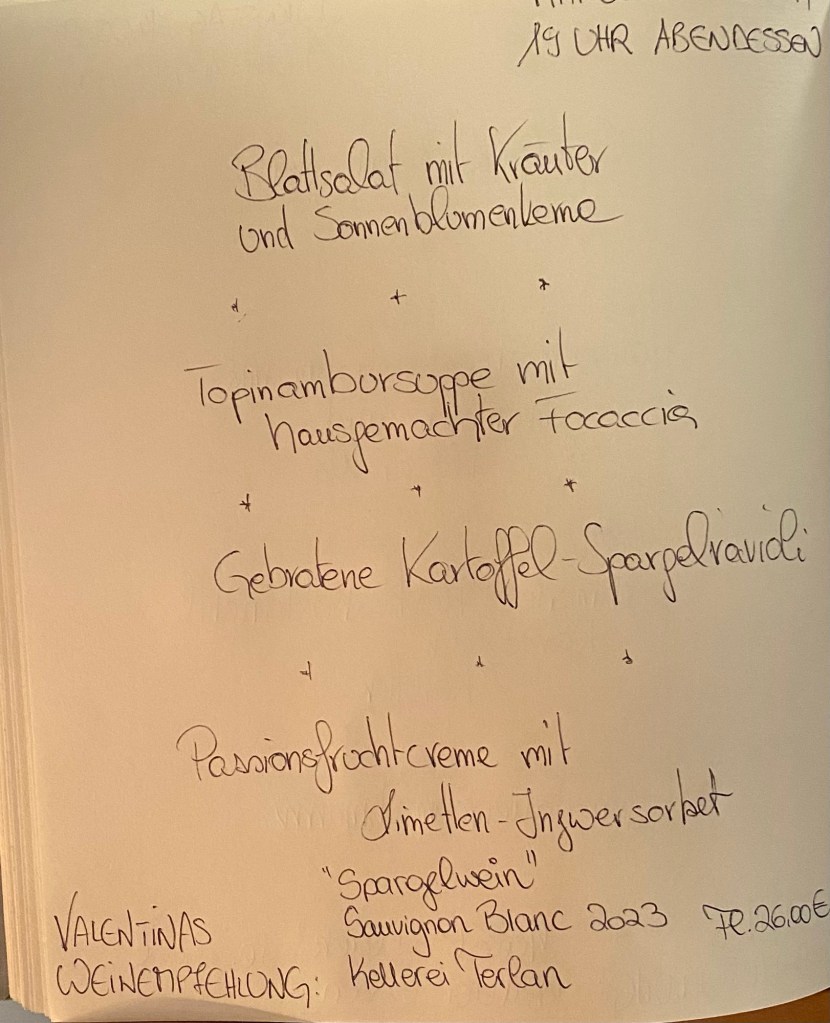 19 UHR ABENDESSEN
Blattsalat mit Kräuter
und Sonnenblumenkerne
* * *
Topinambursuppe mit
hausgemachter Focaccia
* * *
Gebratene Kartoffel-Spargelravioli
* * *
Passionsfruchtcreme mit
Limetten-Ingwersorbet
"Spargelwein"
VALENTINAS Sauvignon Blanc 2023 Fl. 26,00€
WEINEMPFEHLUNG: Kellerei Terlan